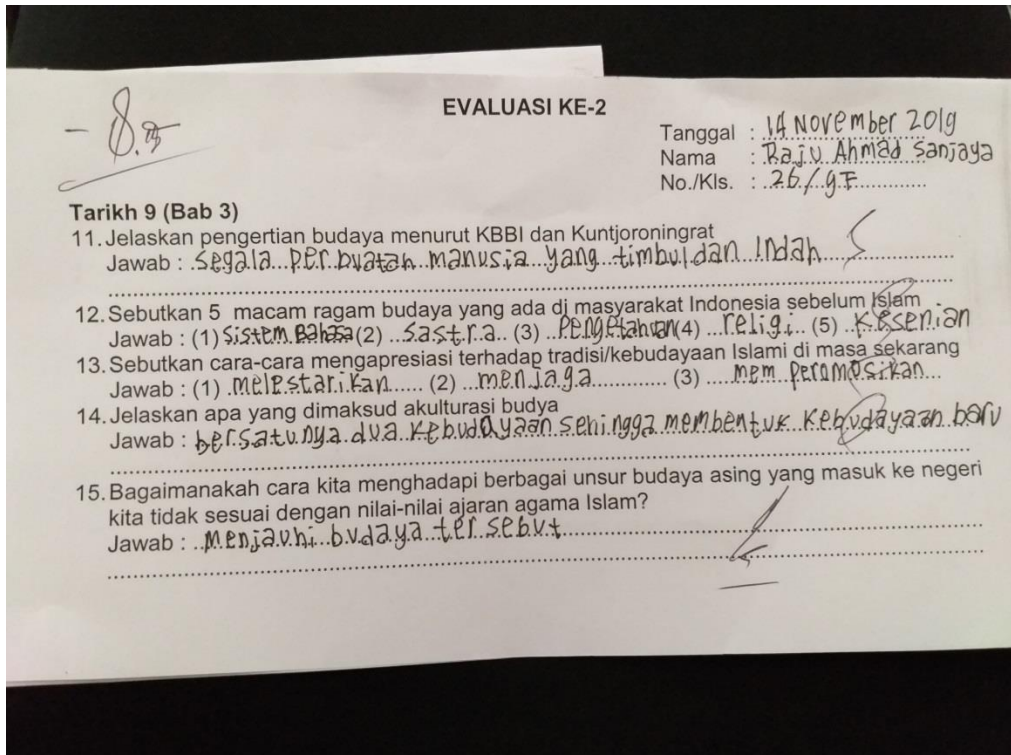 EVALUASI KE-2
Tanggal : 14 November 2019
Nama : Raju Ahmad Sanjaya
No./Kls. : 26 / 9F
Tarikh 9 (Bab 3)
11. Jelaskan pengertian budaya menurut KBBI dan Kuntjoroningrat
Jawab : segala perbuatan manusia yang timbul dan Indah
12. Sebutkan 5 macam ragam budaya yang ada di masyarakat Indonesia sebelum Islam
Jawab : (1) Sistem Bahasa (2) Sastra (3) Pengetahuan (4) religi (5) Kesenian
13. Sebutkan cara-cara mengapresiasi terhadap tradisi/kebudayaan Islami di masa sekarang
Jawab : (1) melestarikan (2) menjaga (3) mem peromosikan
14. Jelaskan apa yang dimaksud akulturasi budya
Jawab : bersatunya dua kebudayaan sehingga membentuk kebudayaan baru
15. Bagaimanakah cara kita menghadapi berbagai unsur budaya asing yang masuk ke negeri
kita tidak sesuai dengan nilai-nilai ajaran agama Islam?
Jawab : Menjauhi budaya tersebut